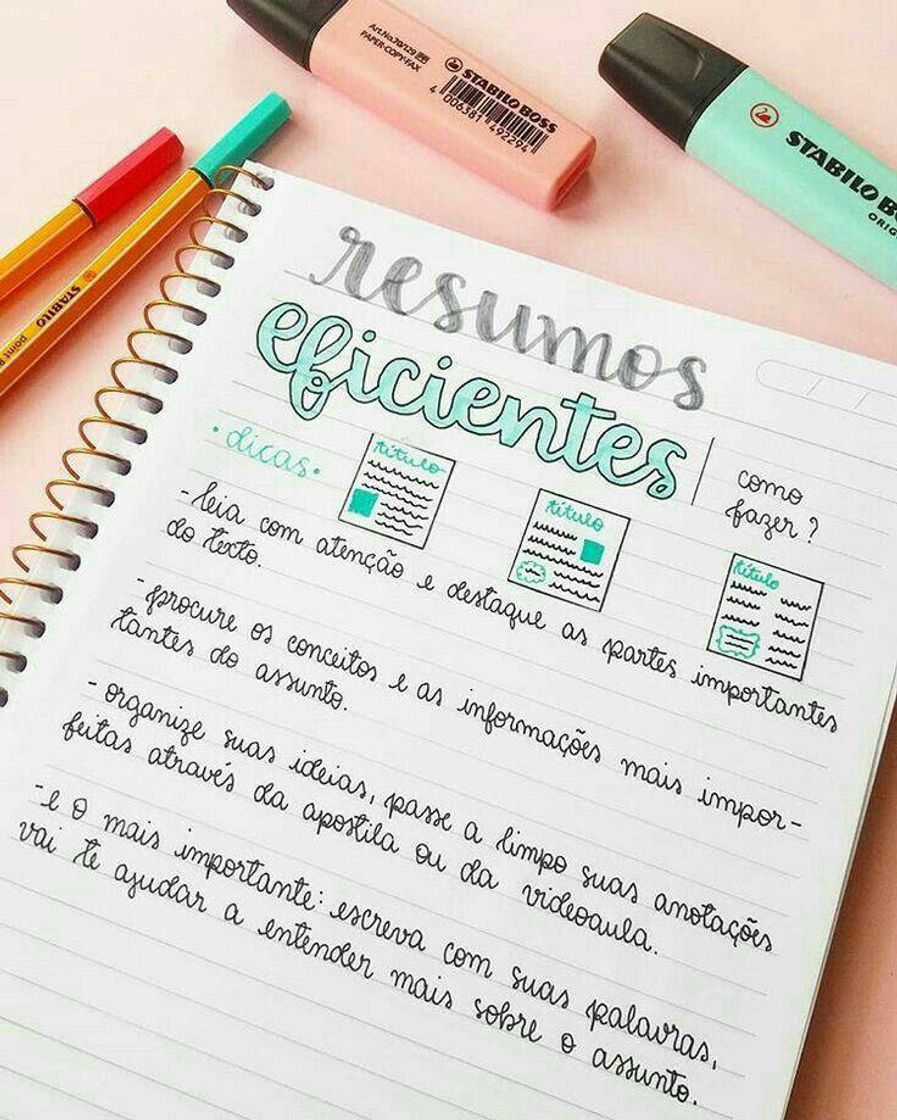 Art.No.70/129
PAPER-COPY-FAX
STABILO BOSS
4 006381 492294
STABILO BO
ORIG
STABILO
point 8
resumos
eficientes
como
fazer?
• dicas •
título
título
título
-leia com atenção e destaque as partes importantes
do texto.
-procure os conceitos e as informações mais impor-
tantes do assunto.
- organize suas ideias, passe a limpo suas anotações
feitas através da apostila ou da videoaula.
-e o mais importante: escreva com suas palavras,
vai te ajudar a entender mais sobre o assunto.